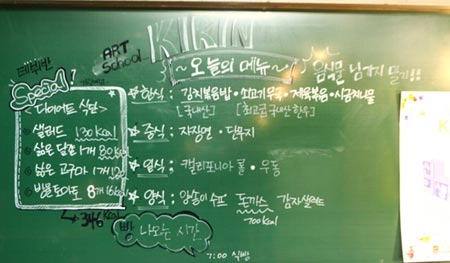 KIKIN
ART School
~오늘의 메뉴~
음식물 남기지 말기!!
Special!
<다이어트 식단>
샐러드 130kcal
삶은 달걀 1개 80kcal
삶은 고구마 1개
방울토마토 8개 16kcal
→ 346kcal
☆한식: 김치볶음밥 · 쇠고기무국 · 제육볶음 · 시금치나물
[국내산] [최고급 국내산 한우]
☆중식: 자장면 · 단무지
☆일식: 캘리포니아 롤 · 우동
☆양식: 양송이 수프 돈까스 감자샐러드
700kcal
빵 나오는 시간
7:00 식빵